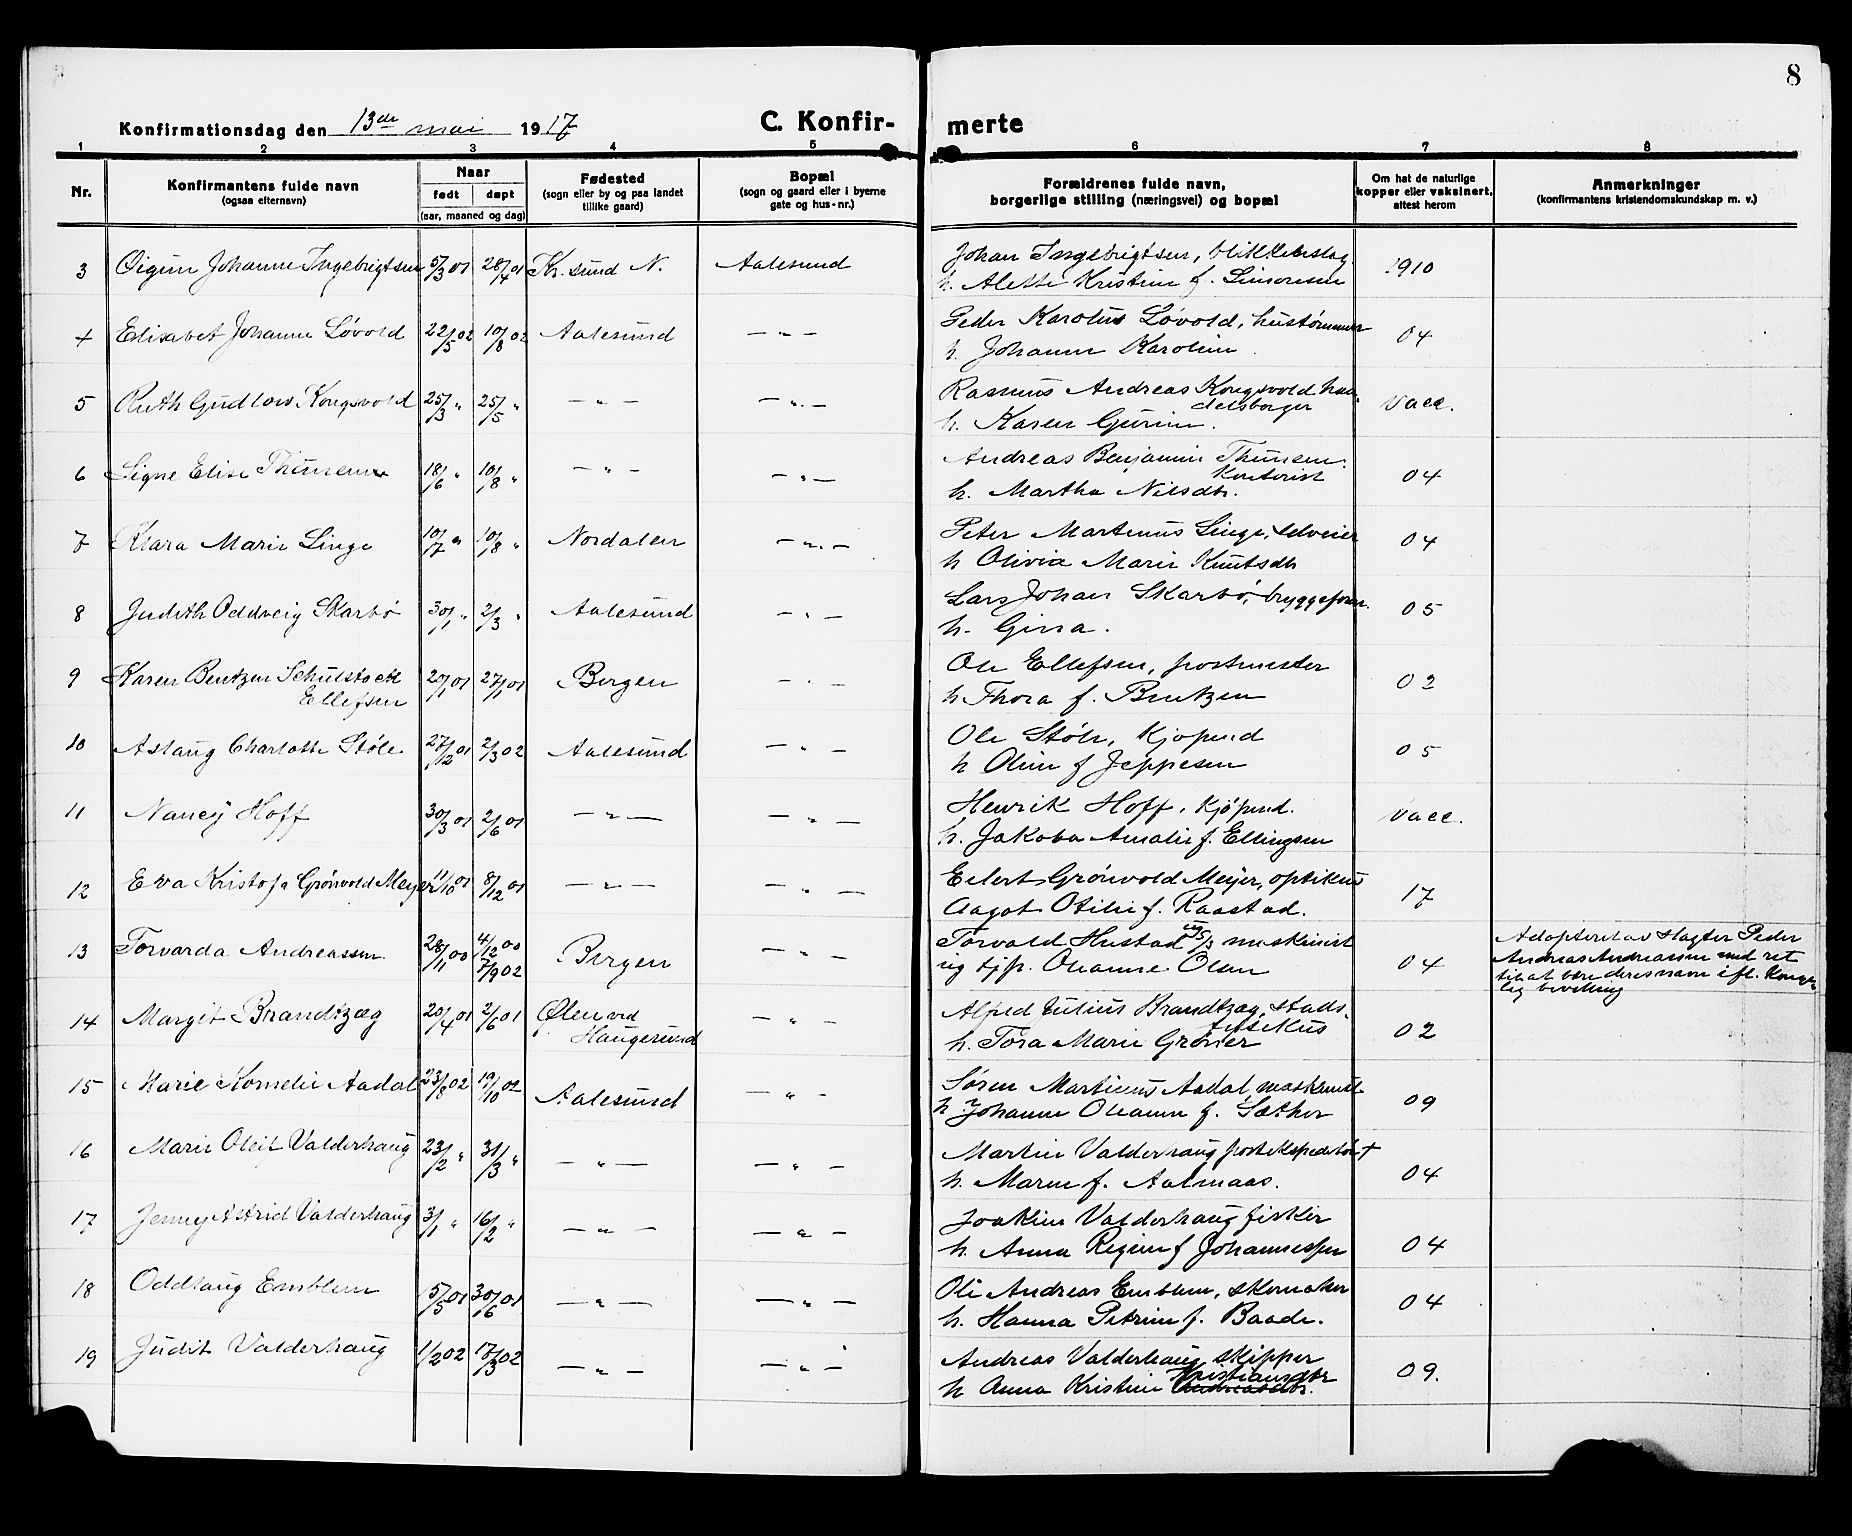 8
Konfirmationsdag den 13de mai 1917
C. Konfirmerte
1 2 3 4 5 6 7 8
Nr.
Konfirmantens fulde navn
(ogsaa efternavn)
Naar
født døpt
(aar, maaned og dag)
Fødested
(sogn eller by og paa landet
tillike gaard)
Bopæl
(sogn og gaard eller i byerne
gate og hus-nr.)
Forældrenes fulde navn,
borgerlige stilling (næringsvei) og bopæl
Om hat de naturlige
kopper eller vaksinert,
attest herom
Anmerkninger
(konfirmantens kristendomskundskap m. v.)
3 Oigun Johanne Ingebrigtsen 5/3 01 28/4 01 Kr.sund N. Aalesund Johan Ingebrigtsen, blikkenslag. 1910
h. Alette Kristine f. Simonsen
4 Elisabet Johanne Løvold 22/5 02 10/8 02 Aalesund — " — Peder Karolus Løvold, hustømmer 04
h. Johanne Karoline.
5 Ruth Gudlow Kongsvold 25/3 " 25/5 " — " — — " — Rasmus Andreas Kongsvold han- Vacc.
delsborger
h. Karen Gurine.
6 Signe Elise Thunem 18/6 " 10/8 " — " — — " — Andreas Benjamin Thunem. 04
Kontorist
h. Martha Nilsdtr.
7 Klara Marie Linge 10/7 " 10/8 " Nordalen — " — Peter Martinus Linge, selveier 04
h Olivia Marie Knutsdtr
8 Judith Oddveig Skarbø 30/1 " 2/3 " Aalesund — " — Lars Johan Skarbø, bryggeform. 05
h. Gina.
9 Karen Bentzen Schulstock 20/1 01 27/1 01 Bergen — " — Ole Ellefsen, postmester 02
Ellefsen
h Thora f. Bentzen
10 Aslaug Charlotte Støle 27/12 01 2/3 02 Aalesund — " — Ole Støle, Kjøpmd 05
h Oline f Jeppesen
11 Nancy Hoff 30/3 01 2/6 01 — " — — " — Henrik Hoff, Kjøpmd. Vacc.
h. Jakoba Amalie f. Ellingsen
12 Eva Kristofa Grønvold Meyer 11/10 01 8/12 01 — " — — " — Eilert Grønvold Meyer, optikus 17
Aagot Otilie f. Raastad.
13 Torvarda Andreassen 28/11 00 4/12 00 Bergen Torvald Hustad maskinist 04 Adopteret av Slagter Peder
7/9 02
og tjp. Oleanne Olsen
Andreas Andreassen med ret
til at bære deres navn ifl. Konge-
lig bevilling
14 Margit Brandtzæg 20/4 01 2/6 01 Ølen ved — " — Alfred Julius Brandtzæg, stads- 02
Haugesund
fysikus
h. Tora Marie Grøner
15 Marie Kornelie Aadal 23/8 02 19/10 02 Aalesund — " — Søren Martinus Aadal, maskinist 09
h Johanne Oleanne f. Sæther
16 Marie Oleit Valderhaug 23/2 " 31/3 " — " — — " — Martin Valderhaug postekspeditør + 04
h. Maren f. Aalmaas.
17 Jenny Astrid Valderhaug 3/1 " 16/2 " — " — — " — Joakim Valderhaug fisker 04
h. Anna Regine f Johannessen
18 Oddlaug Emblem 5/5 01 30/6 01 — " — — " — Ole Andreas Emblem, skomaker 04
h. Hanna Petrine f. Baade.
19 Judit Valderhaug 1/2 02 17/3 02 — " — — " — Andreas Valderhaug skipper 09.
Kristiansdtr
h Anna Kristine Andreasdtr.